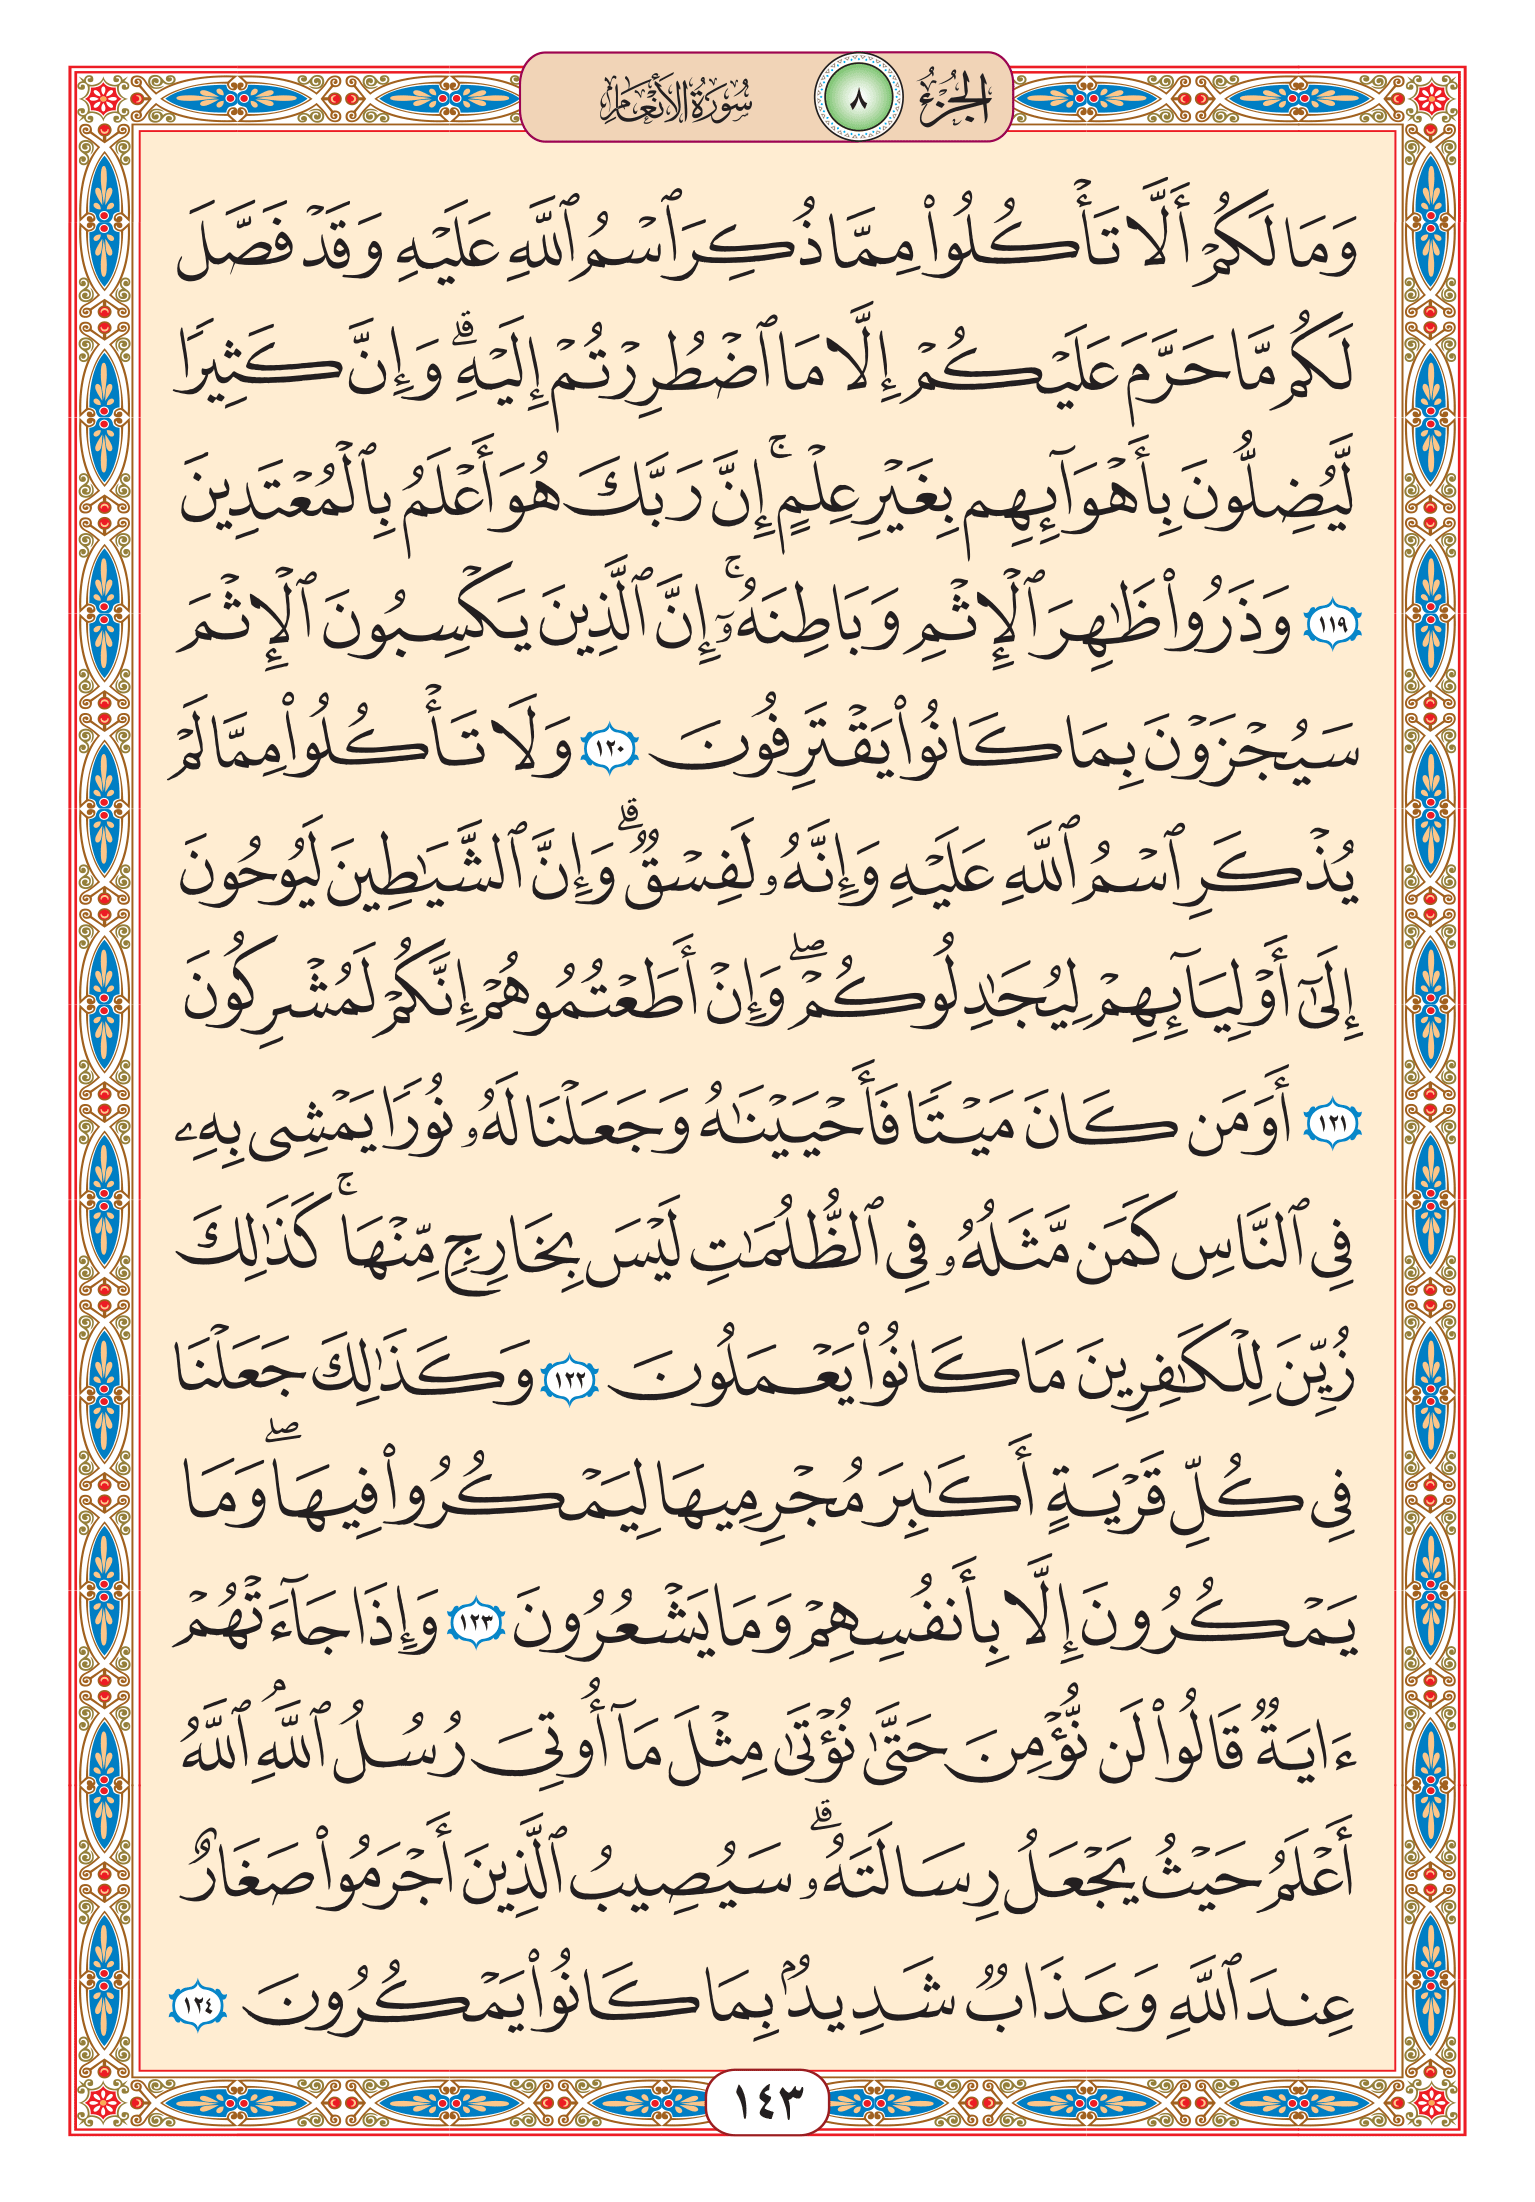 الجزء ٨ سورة الأنعام
وَمَا لَكُمْ أَلَّا تَأْكُلُوا۟ مِمَّا ذُكِرَ ٱسْمُ ٱللَّهِ عَلَيْهِ وَقَدْ فَصَّلَ
لَكُم مَّا حَرَّمَ عَلَيْكُمْ إِلَّا مَا ٱضْطُرِرْتُمْ إِلَيْهِ ۗ وَإِنَّ كَثِيرًا
لَّيُضِلُّونَ بِأَهْوَآئِهِم بِغَيْرِ عِلْمٍ ۚ إِنَّ رَبَّكَ هُوَ أَعْلَمُ بِٱلْمُعْتَدِينَ
١١٩ وَذَرُوا۟ ظَٰهِرَ ٱلْإِثْمِ وَبَاطِنَهُۥٓ ۚ إِنَّ ٱلَّذِينَ يَكْسِبُونَ ٱلْإِثْمَ
سَيُجْزَوْنَ بِمَا كَانُوا۟ يَقْتَرِفُونَ ١٢٠ وَلَا تَأْكُلُوا۟ مِمَّا لَمْ
يُذْكَرِ ٱسْمُ ٱللَّهِ عَلَيْهِ وَإِنَّهُۥ لَفِسْقٌ ۗ وَإِنَّ ٱلشَّيَٰطِينَ لَيُوحُونَ
إِلَىٰٓ أَوْلِيَآئِهِمْ لِيُجَٰدِلُوكُمْ ۖ وَإِنْ أَطَعْتُمُوهُمْ إِنَّكُمْ لَمُشْرِكُونَ
١٢١ أَوَمَن كَانَ مَيْتًا فَأَحْيَيْنَٰهُ وَجَعَلْنَا لَهُۥ نُورًا يَمْشِى بِهِۦ
فِى ٱلنَّاسِ كَمَن مَّثَلُهُۥ فِى ٱلظُّلُمَٰتِ لَيْسَ بِخَارِجٍ مِّنْهَا ۚ كَذَٰلِكَ
زُيِّنَ لِلْكَٰفِرِينَ مَا كَانُوا۟ يَعْمَلُونَ ١٢٢ وَكَذَٰلِكَ جَعَلْنَا
فِى كُلِّ قَرْيَةٍ أَكَٰبِرَ مُجْرِمِيهَا لِيَمْكُرُوا۟ فِيهَا ۖ وَمَا
يَمْكُرُونَ إِلَّا بِأَنفُسِهِمْ وَمَا يَشْعُرُونَ ١٢٣ وَإِذَا جَآءَتْهُمْ
ءَايَةٌ قَالُوا۟ لَن نُّؤْمِنَ حَتَّىٰ نُؤْتَىٰ مِثْلَ مَآ أُوتِىَ رُسُلُ ٱللَّهِ ۘ ٱللَّهُ
أَعْلَمُ حَيْثُ يَجْعَلُ رِسَالَتَهُۥ ۗ سَيُصِيبُ ٱلَّذِينَ أَجْرَمُوا۟ صَغَارٌ
عِندَ ٱللَّهِ وَعَذَابٌ شَدِيدٌۢ بِمَا كَانُوا۟ يَمْكُرُونَ ١٢٤
١٤٣